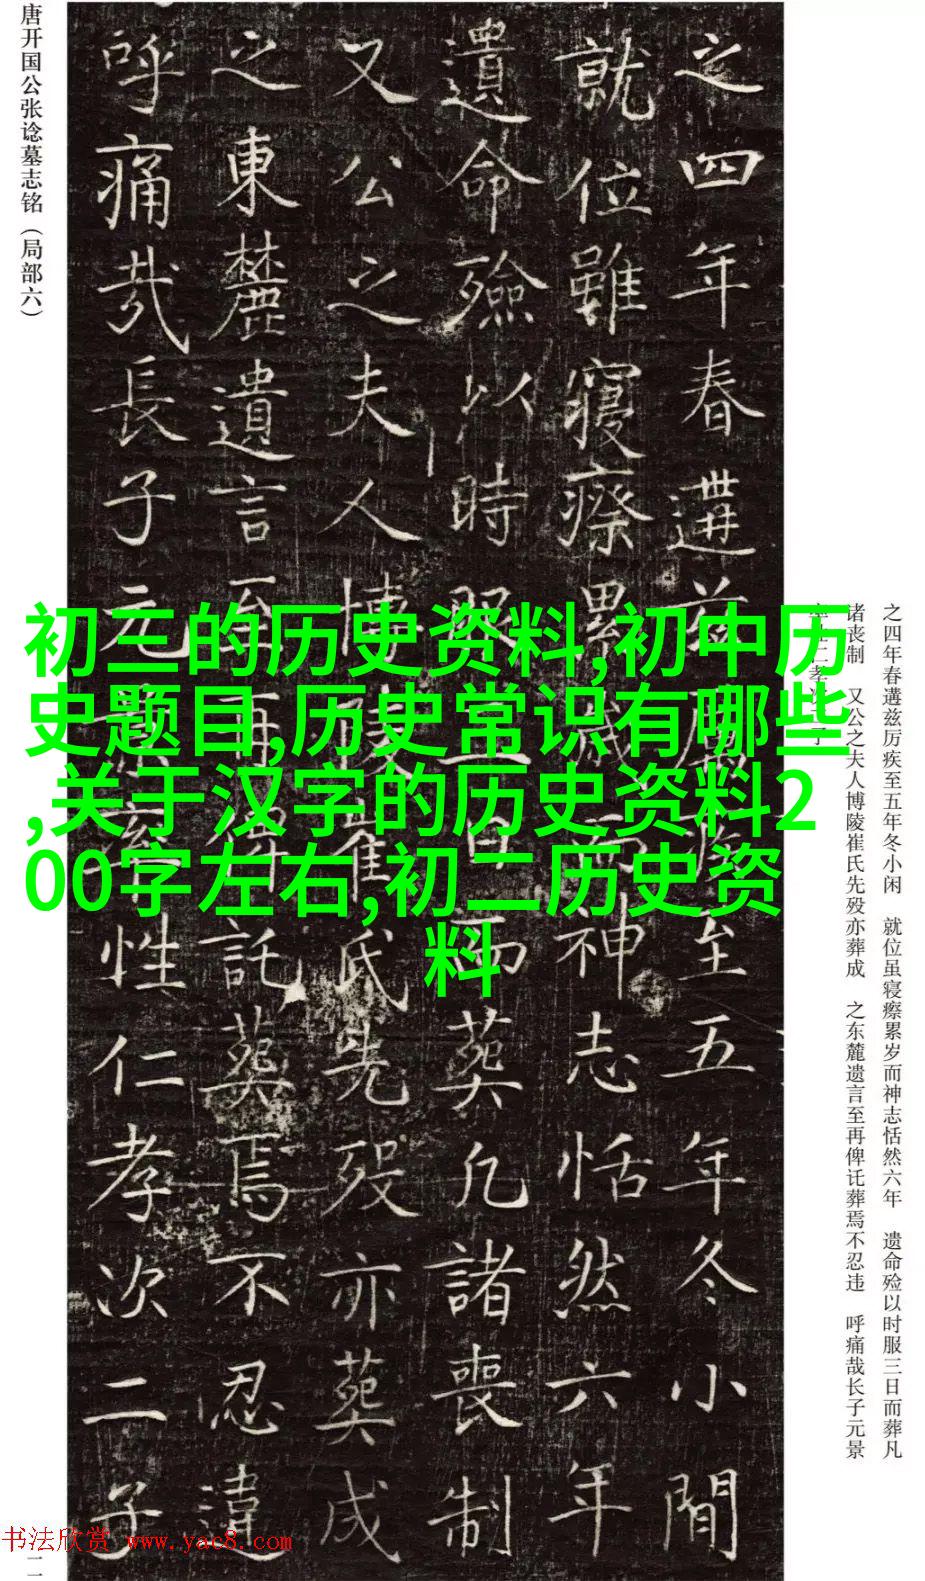 唐开国公张谂墓志铭（局部六）
之四年春遘茲厲疾至五年冬小間
就位雖寢瘵累歲而神志恬然六年
遺命殮以時服三日而葬凡諸喪制
又公之夫人博陵崔氏先歿亦葬成
之東麓遺言至再俾託葬焉不忍違
呼痛哉長子元景性仁孝次二子
之四年春遘兹厉疾至五年冬小闲　就位虽寝瘵累岁而神志恬然六年　遗命殓以时服三日而葬凡
诸丧制　又公之夫人博陵崔氏先殁亦葬成　之东麓遗言至再俾讬葬焉不忍违　呼痛哉长子元景
初三的历史资料,初中历
史题目,历史常识有哪些
,关于汉字的历史资料2
00字左右,初二历史资
料
书法欣赏 www.yac8.com